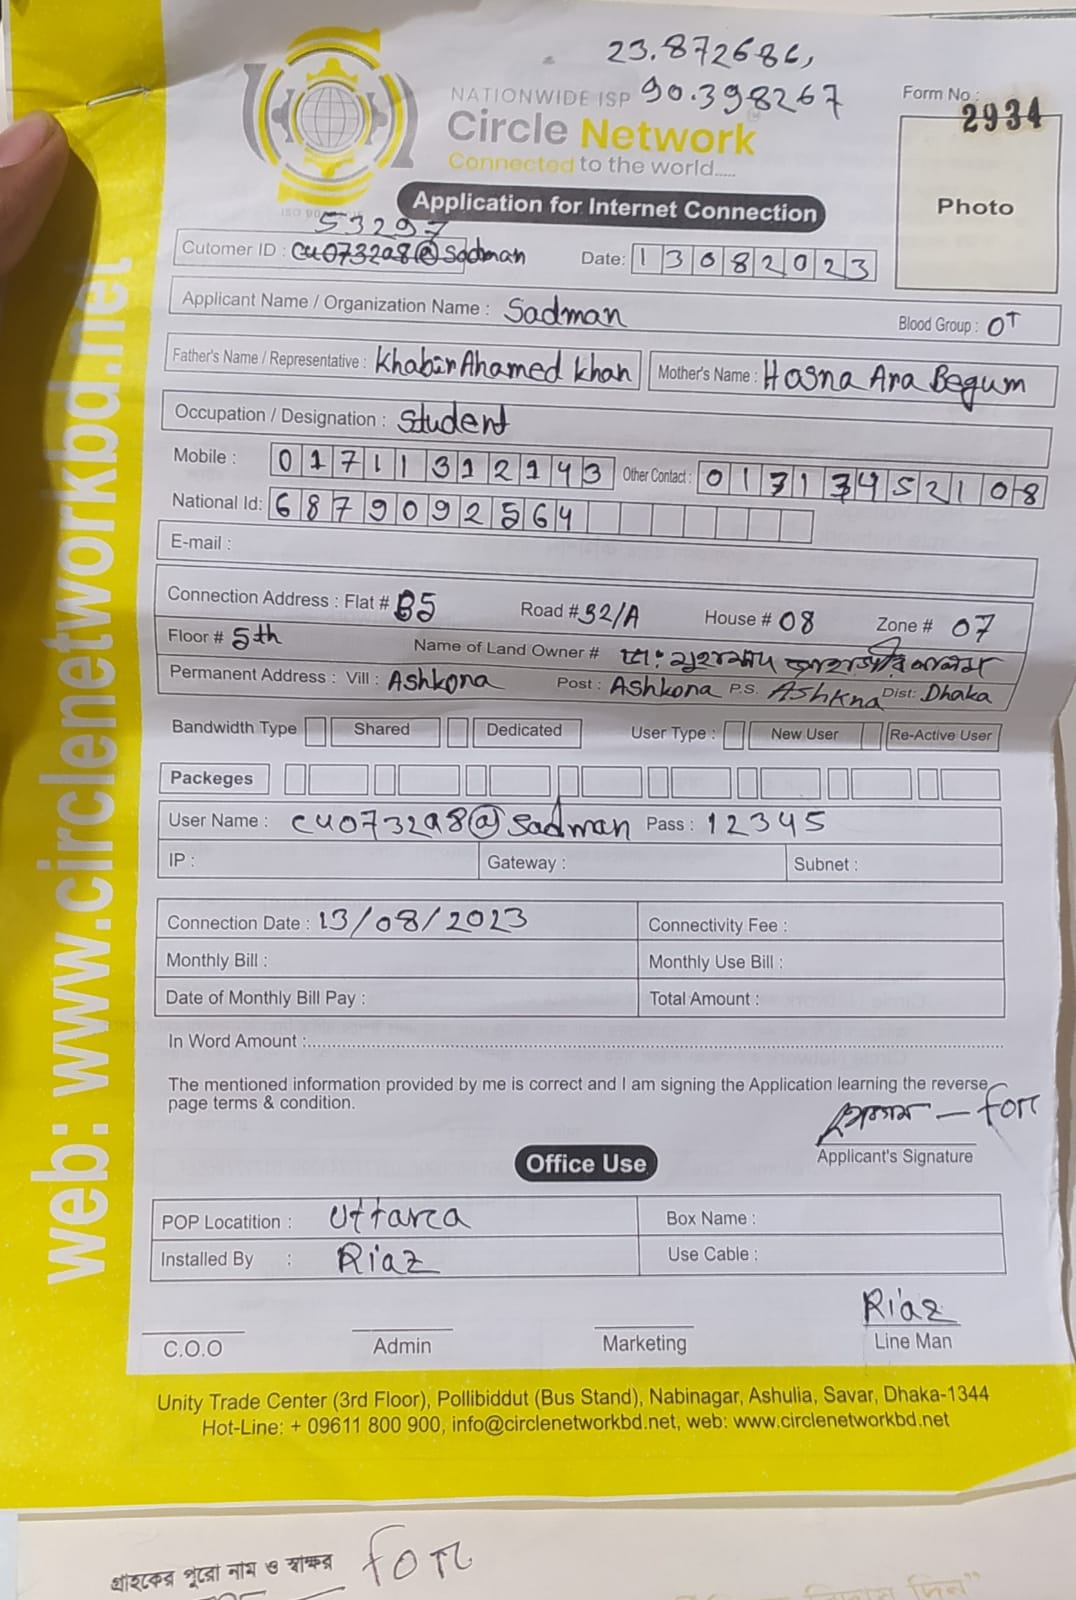 23.872686,
90.398267
NATIONWIDE ISP
Circle Network
Connected to the world.....
Form No :
2934
Photo
Application for Internet Connection
53297
Cutomer ID : cu073298@Sadman Date: 13082023
Applicant Name / Organization Name : Sadman Blood Group : O+
Father's Name / Representative : Khabir Ahamed Khan Mother's Name : Hasna Ara Begum
Occupation / Designation : Student
Mobile : 01711312143 Other Contact : 01313452108
National Id: 6879092564
E-mail :
Connection Address : Flat # B5 Road # 32/A House # 08 Zone # 07
Floor # 5th Name of Land Owner # মো:
Permanent Address : Vill : Ashkona Post : Ashkona P.S. Ashkna Dist: Dhaka
Bandwidth Type Shared Dedicated User Type : New User Re-Active User
Packeges
User Name : cu073298@Sadman Pass : 12345
IP : Gateway : Subnet :
Connection Date : 13/08/2023 Connectivity Fee :
Monthly Bill : Monthly Use Bill :
Date of Monthly Bill Pay : Total Amount :
In Word Amount :
The mentioned information provided by me is correct and I am signing the Application learning the reverse
page terms & condition.
– for
Applicant's Signature
Office Use
POP Locatition : Uttara Box Name :
Installed By : Riaz Use Cable :
Riaz
C.O.O Admin Marketing Line Man
Unity Trade Center (3rd Floor), Pollibiddut (Bus Stand), Nabinagar, Ashulia, Savar, Dhaka-1344
Hot-Line: + 09611 800 900, info@circlenetworkbd.net, web: www.circlenetworkbd.net
web: www.circlenetworkbd.net
গ্রাহকের পুরো নাম ও স্বাক্ষর for